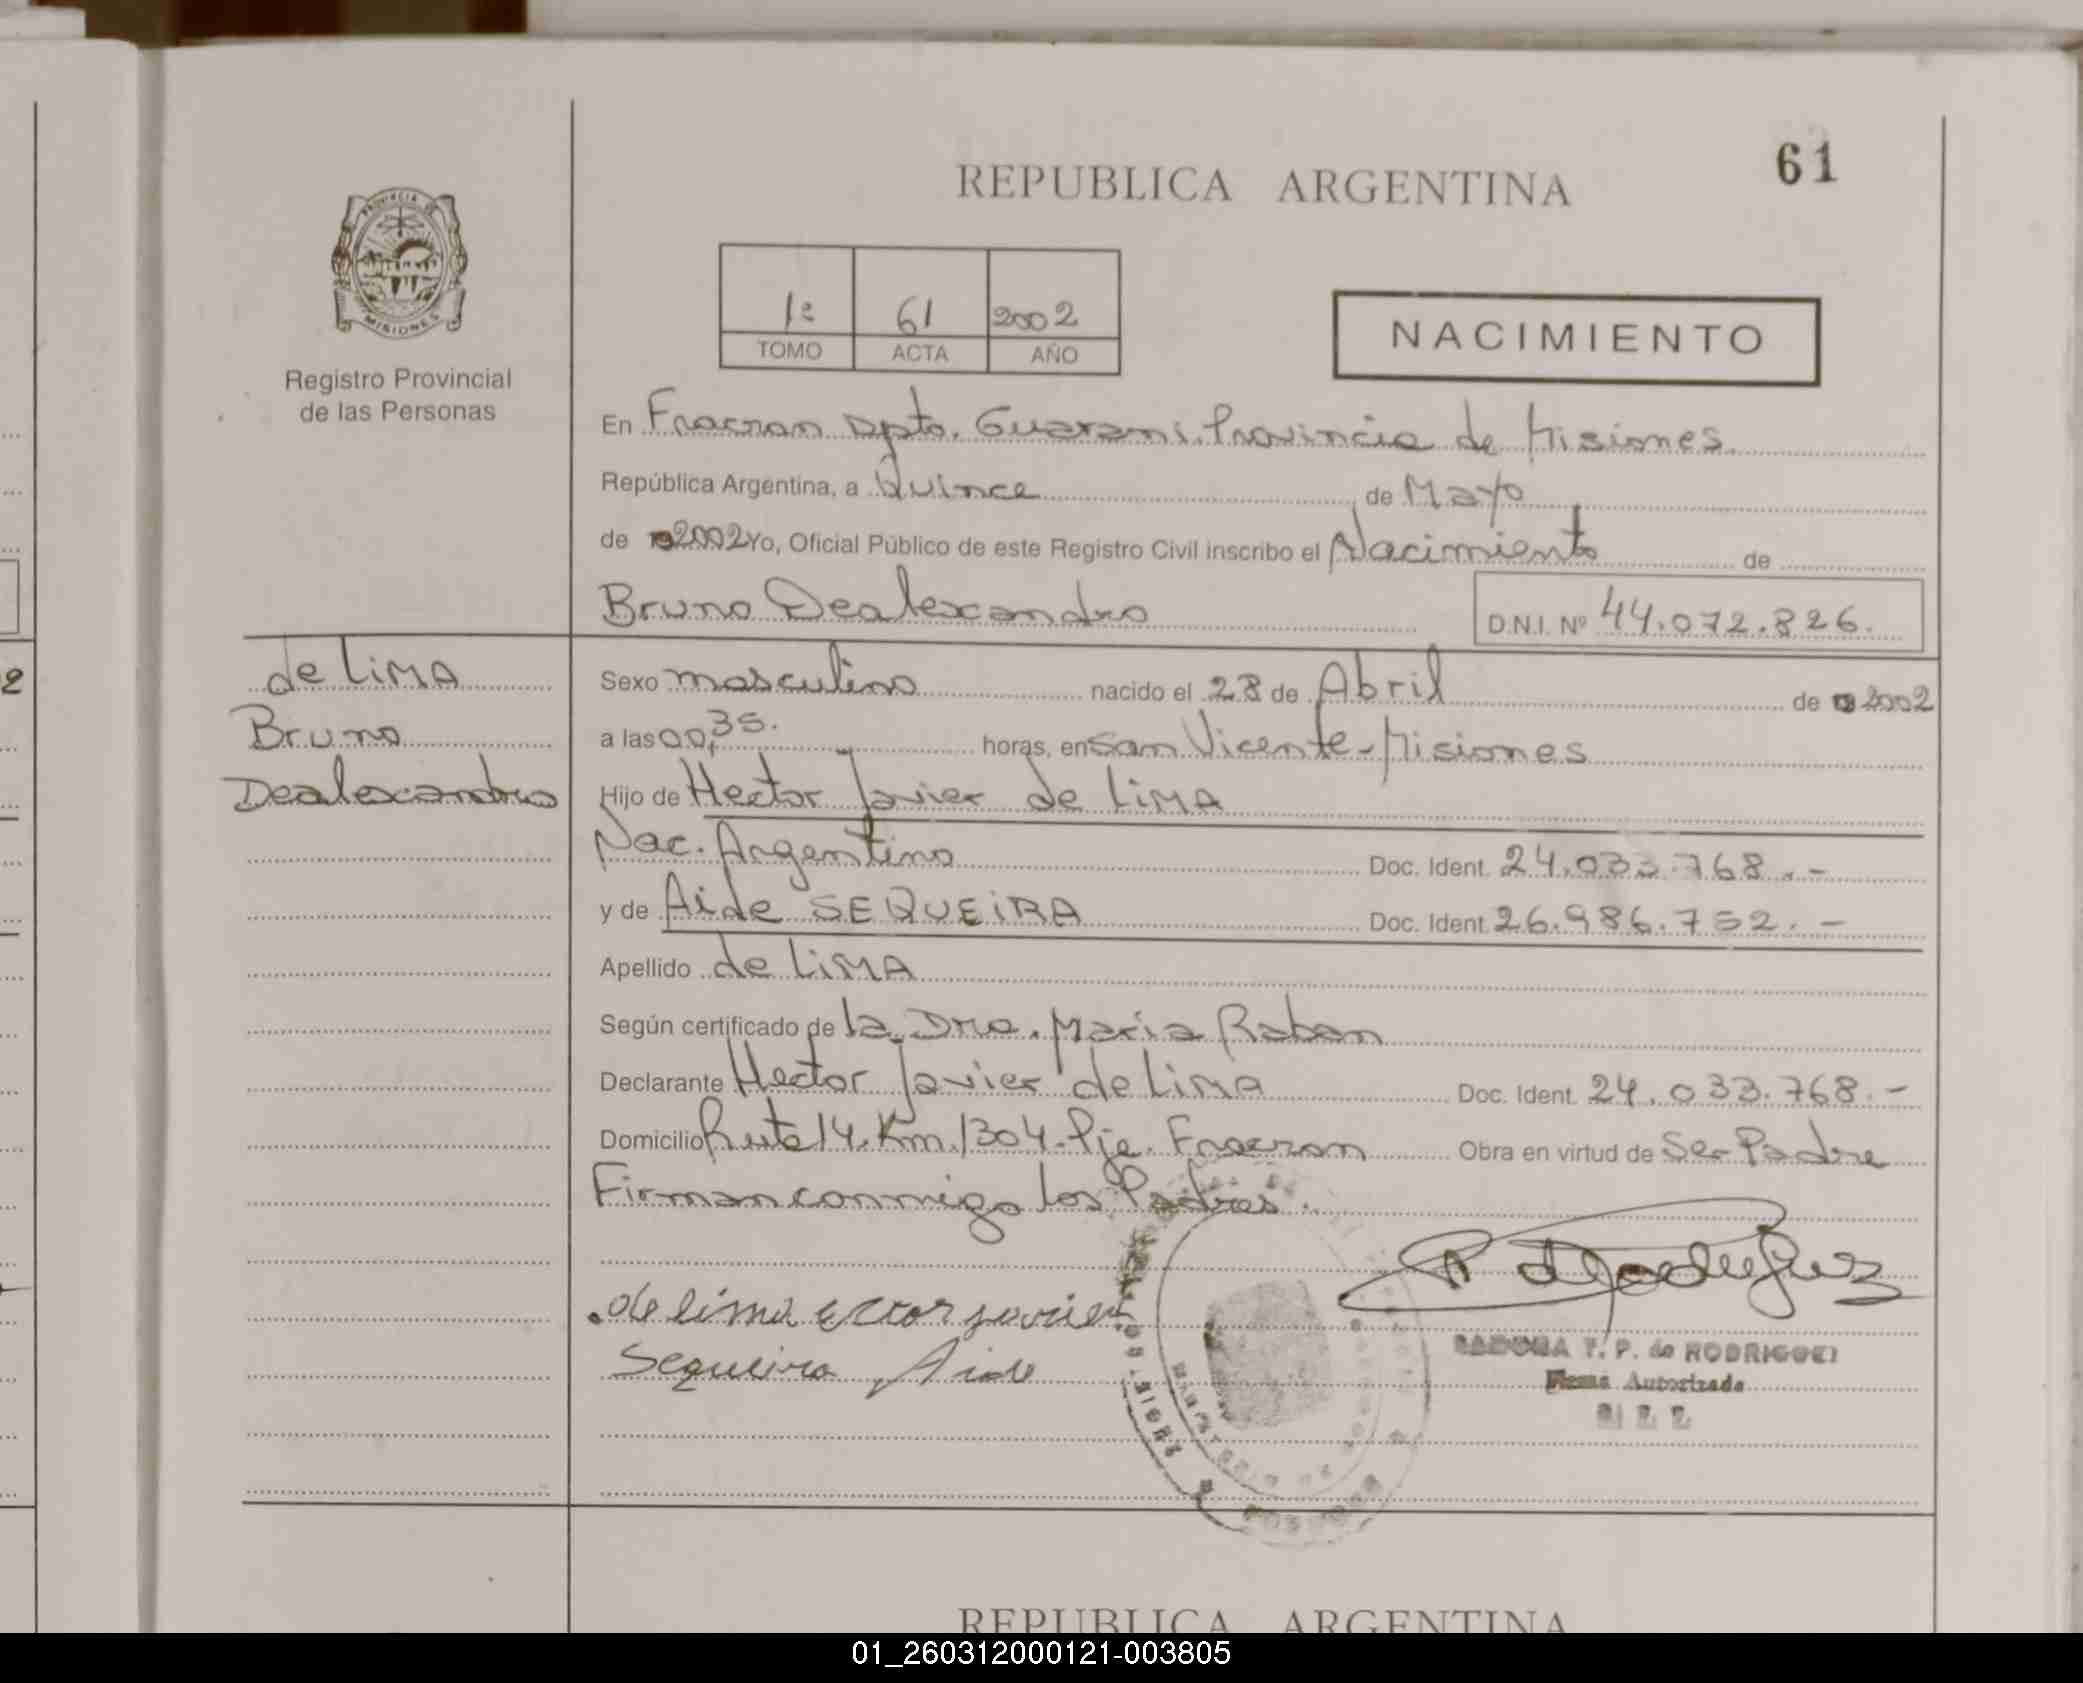 61
REPUBLICA ARGENTINA
PROVINCIA DE
MISIONES
Registro Provincial
de las Personas
1º 61 2002
TOMO ACTA AÑO
NACIMIENTO
En Fracran Dpto. Guarani. Provincia de Misiones
República Argentina, a Quince de Mayo
de 2002 Yo, Oficial Público de este Registro Civil inscribo el Nacimiento de
Bruno Dealexandro D.N.I. Nº 44.072.826.
de LiMA
Bruno
Dealexandro
Sexo masculino nacido el 28 de Abril de 2002
a las 00,35. horas, en San Vicente-Misiones
Hijo de Hector Javier de LiMA
Nac. Argentino Doc. Ident. 24.033.768.-
y de Aide SEQUEiRA Doc. Ident. 26.986.752.-
Apellido de LiMA
Según certificado de la Dra. Maria Raban
Declarante Hector Javier de LiMA Doc. Ident. 24.033.768.-
Domicilio Ruta 14. Km. 1304. Pje. Fracran Obra en virtud de Ser Padre
Firman conmigo los Padres.
de lima ector javier
Sequeira Aide
T. P. de RODRIGUEZ
Firma Autorizada
REPUBLICA ARGENTINA
01_260312000121-003805